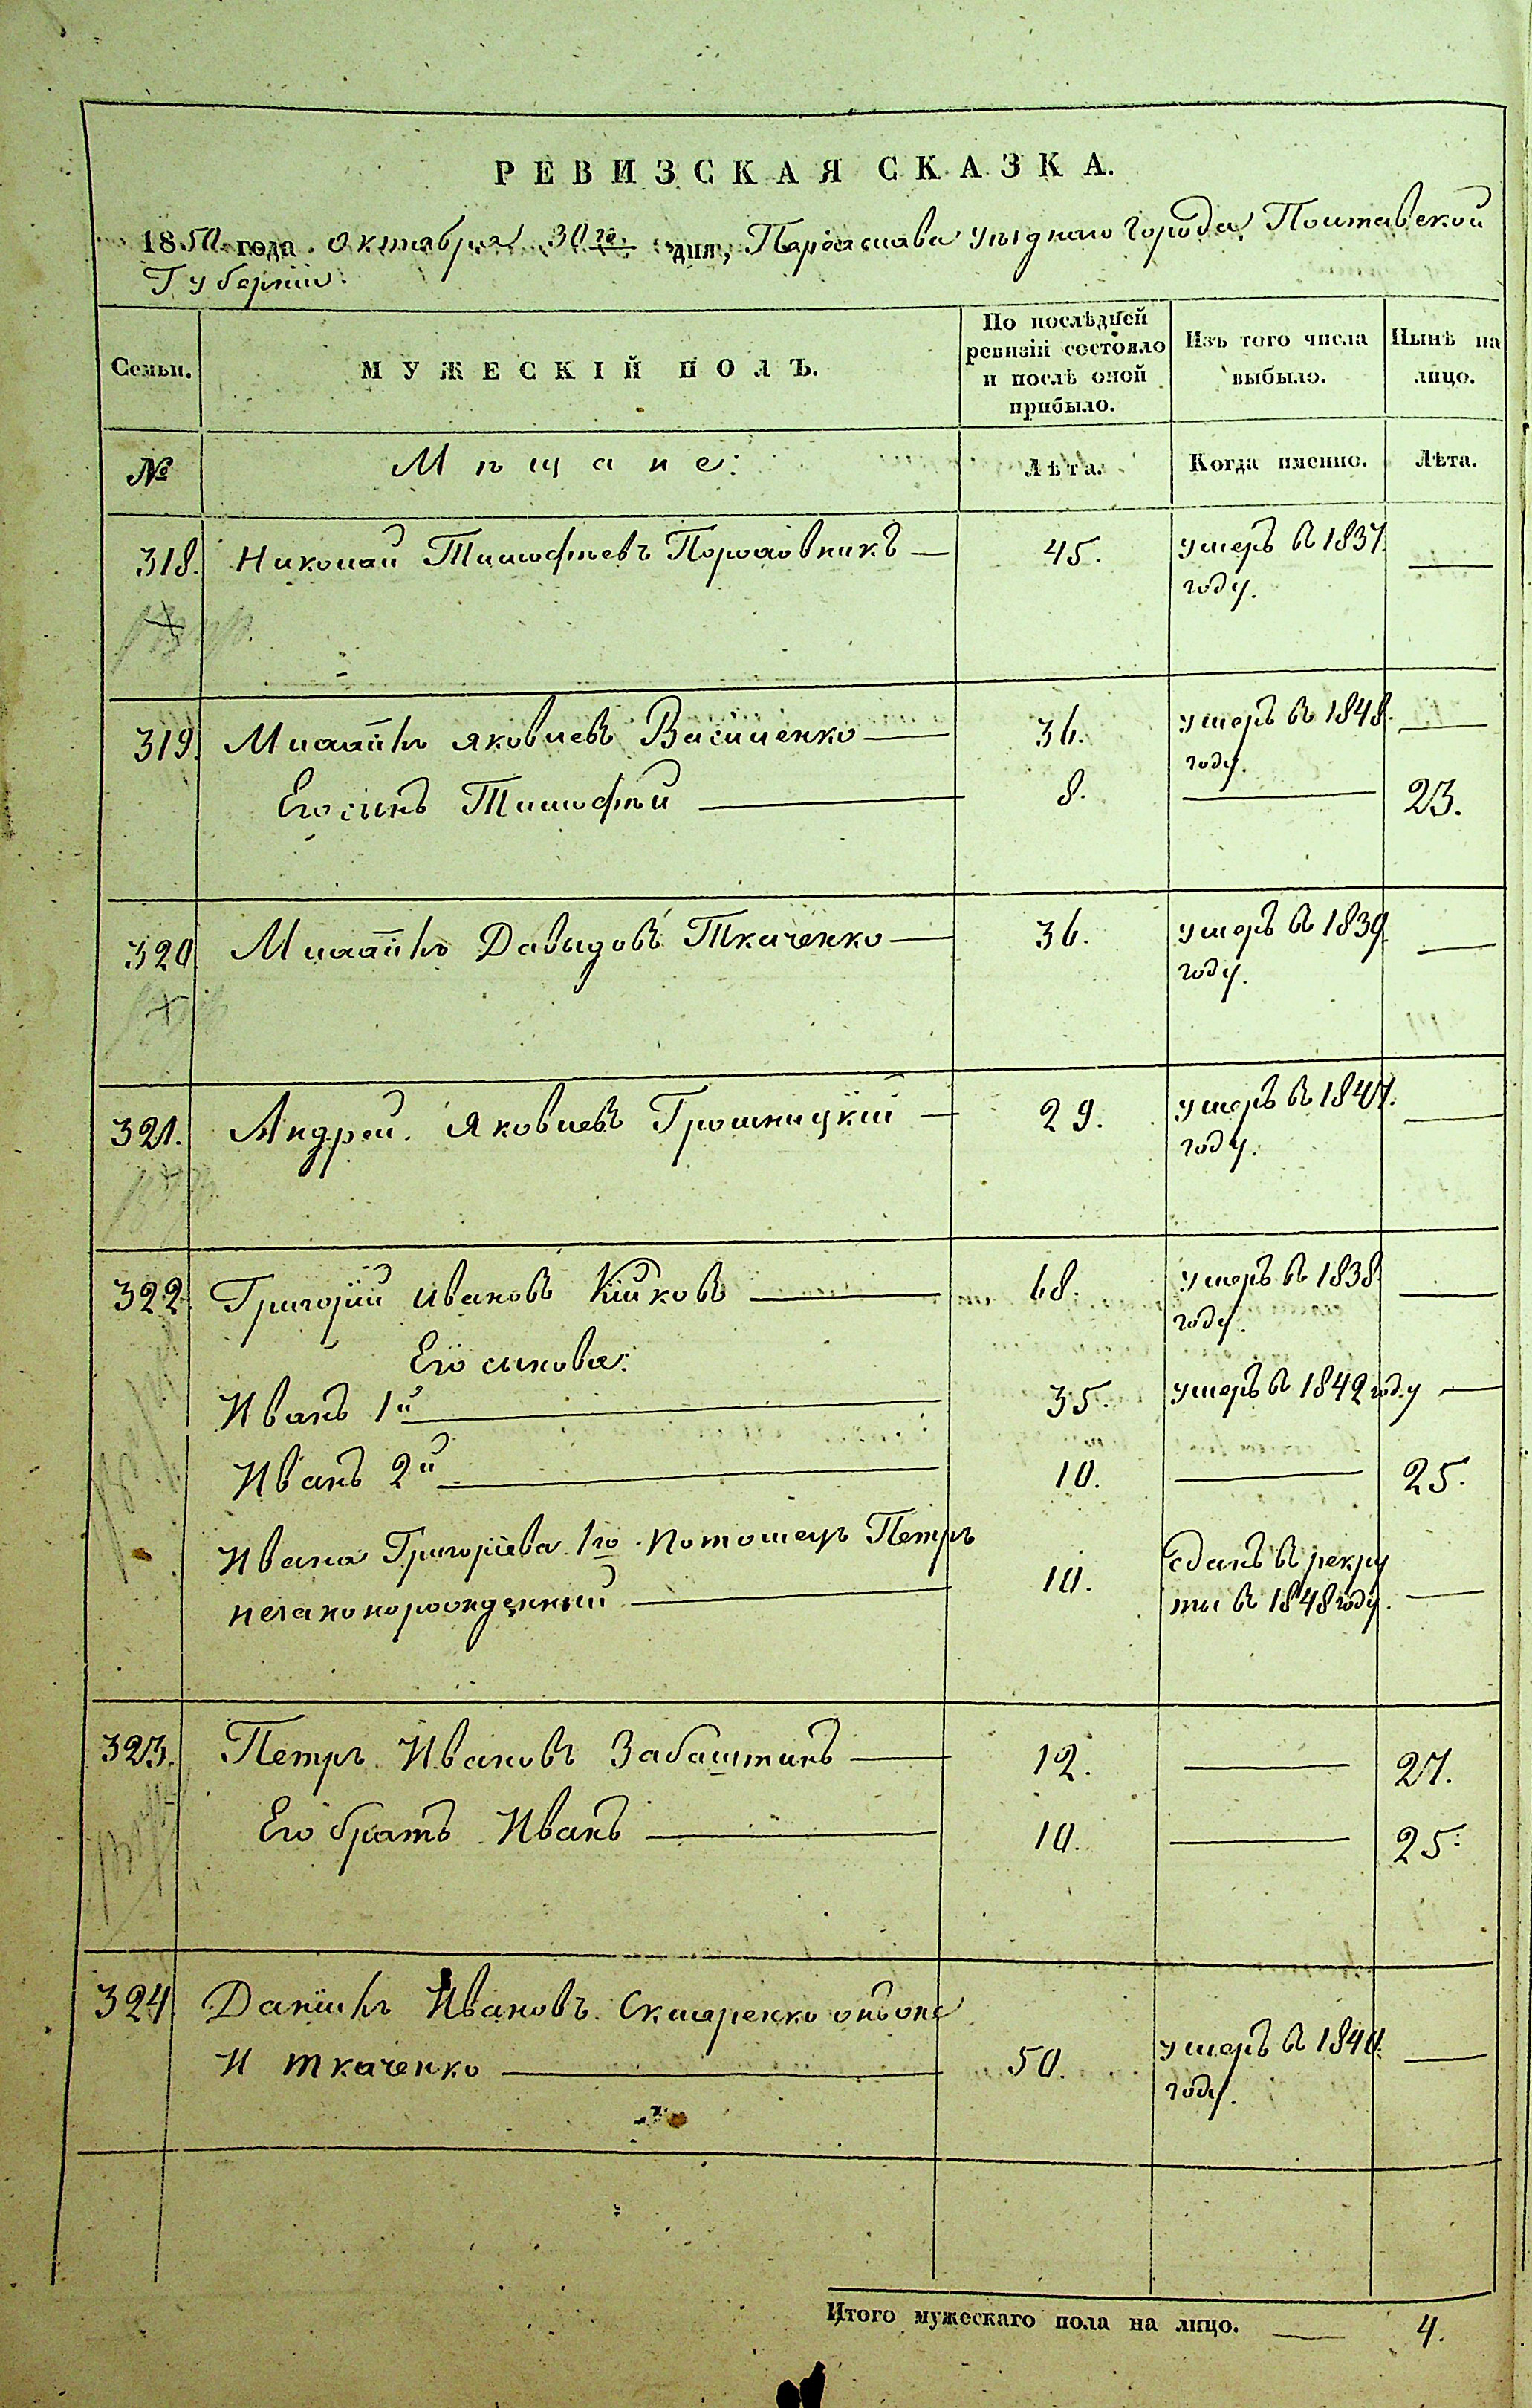 РЕВИЗСКАЯ СКАЗКА.
1850 года октября 30го дня, Переяслава уѣзднаго города, Полтавской
Губерніи.
Семьи.
МУЖЕСКІЙ ПОЛЪ.
По послѣдней
ревизіи состояло
и послѣ оной
прибыло.
Изъ того числа
выбыло.
Нынѣ на
лицо.
№
Мѣщане:
Лѣта.
Когда именно.
Лѣта.
318. Николай Тимофѣевъ — 45. умеръ в 1837 —
году.
319. Михайлъ Яковлевъ Василенко — 36. умеръ в 1848. —
году.
Его сынъ Тимофѣй — 8. — 23.
320. Михайлъ Давыдовъ Ткаченко — 36. умеръ в 1839 —
году.
321. Андрей Яковлевъ Грошницкій — 29. умеръ в 1847. —
году.
322. Григорій Ивановъ Кійковъ — 68. умеръ в 1838 —
году.
Его сынова:
Иванъ 1й — 35. умеръ в 1842 году —
Иванъ 2й — 10. — 25.
Ивана Григоріева 1го потомецъ Петръ
незаконорожденный — 10. сданъ в рекру
ты в 1848 году. —
323. Петръ Ивановъ Забаштинъ — 12. — 27.
Его братъ Иванъ — 10. — 25.
324. Данійлъ Ивановъ Скляренко онъ же
и Ткаченко — 50. умеръ в 1840. —
году.
Итого мужескаго пола на лицо. — 4.